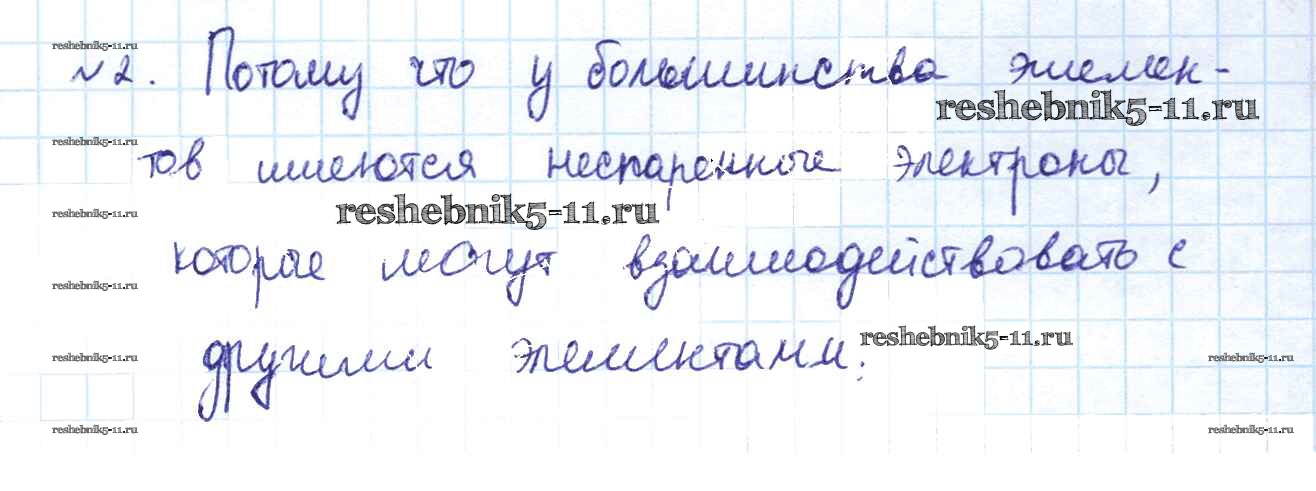 reshebnik5-11.ru
№2. Потому что у большинства элемен-
reshebnik5-11.ru
reshebnik5-11.ru
тов имеются неспаренные электроны,
reshebnik5-11.ru
reshebnik5-11.ru
которые могут взаимодействовать с
reshebnik5-11.ru
reshebnik5-11.ru
другими элементами.
reshebnik5-11.ru
reshebnik5-11.ru
reshebnik5-11.ru
reshebnik5-11.ru